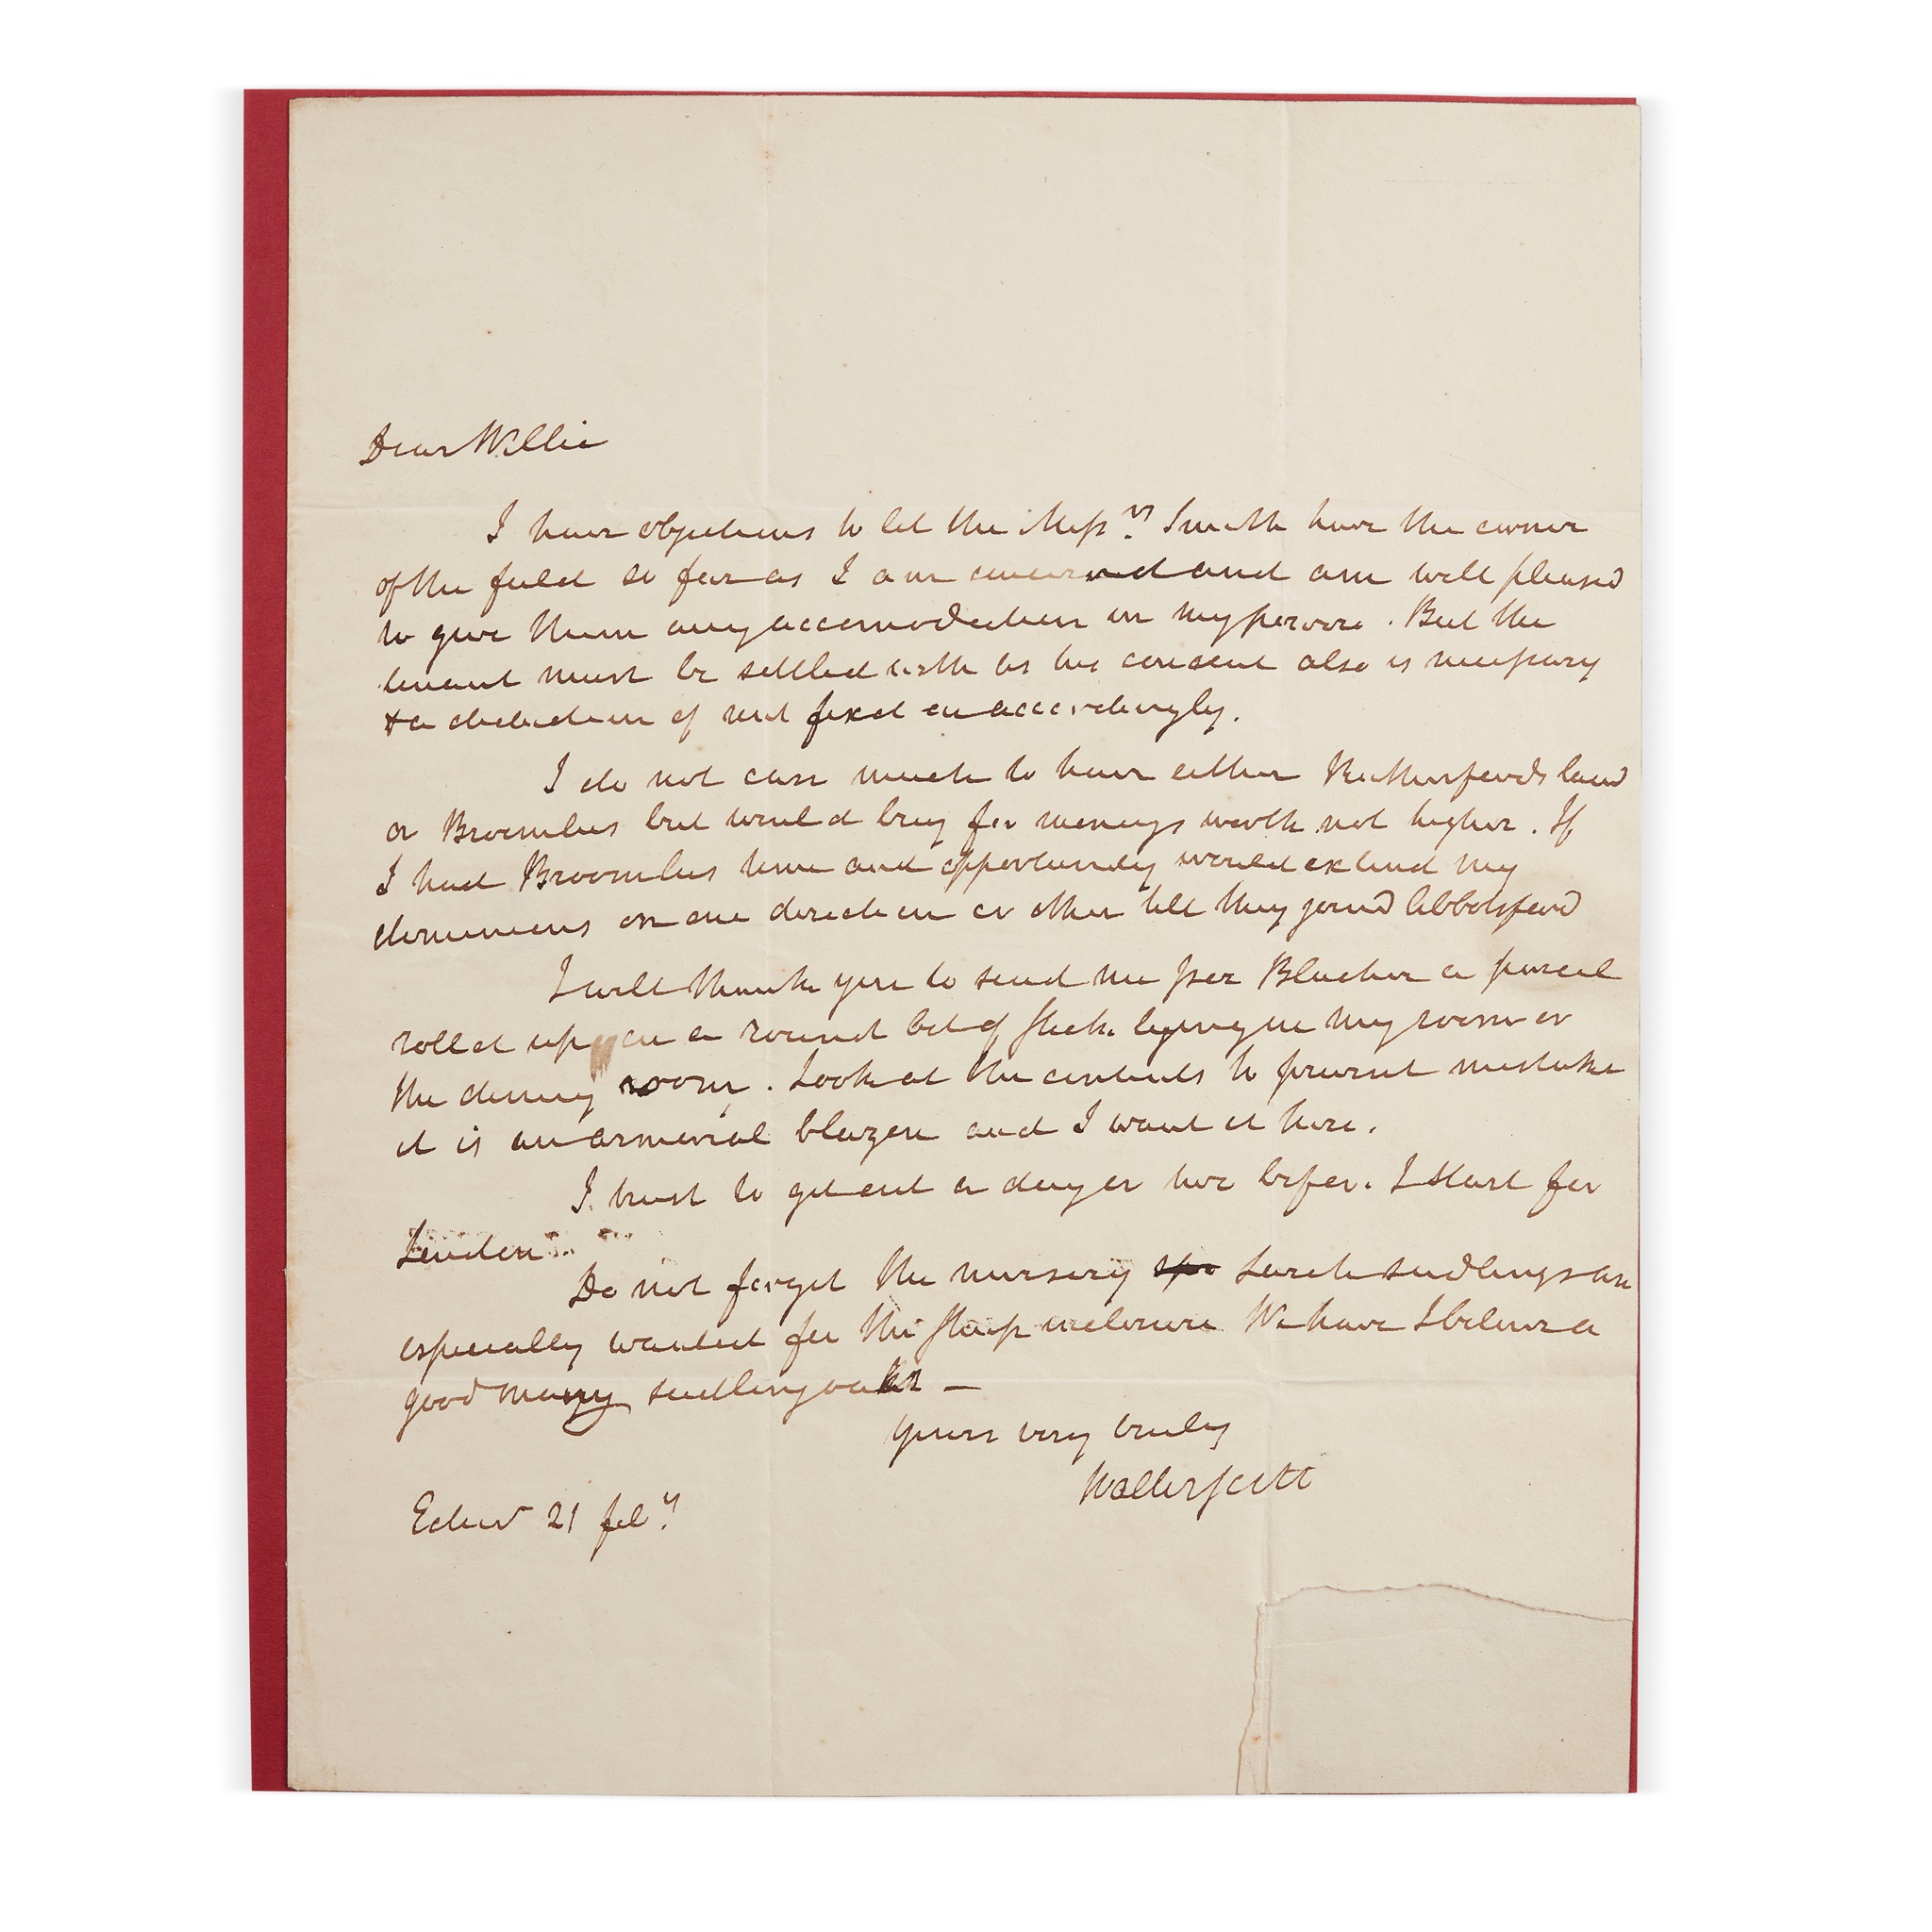 Dear Willie
I have objections to let the Mess.rs Smith have the corner
of the field so far as I am concerned and am well pleased
to give them any accomodation in my power. But the
tenant must be settled with as his consent also is necessary
& a deduction of rent fixd on accordingly.
I do not care much to have either Rutherfords land
or Broomlees but would buy for moneys worth not higher. If
I had Broomlees time and opportunity would extend my
dominions in one direction or other till they joind Abbotsford
I will thank you to send me per Blucher a parcel
rolled up on a round bit of stick lying in my room or
the dining room. Look at the contents to prevent mistake
it is an armorial blazon and I want it here.
I trust to get out a day or two before I start for
London.
Do not forget the nursery Larch seedlings are
especially wanted for the Sheep inclosure We have I believe a
good many seedling oaks —
Yours very truly
Walter Scott
Edinr 21 feby